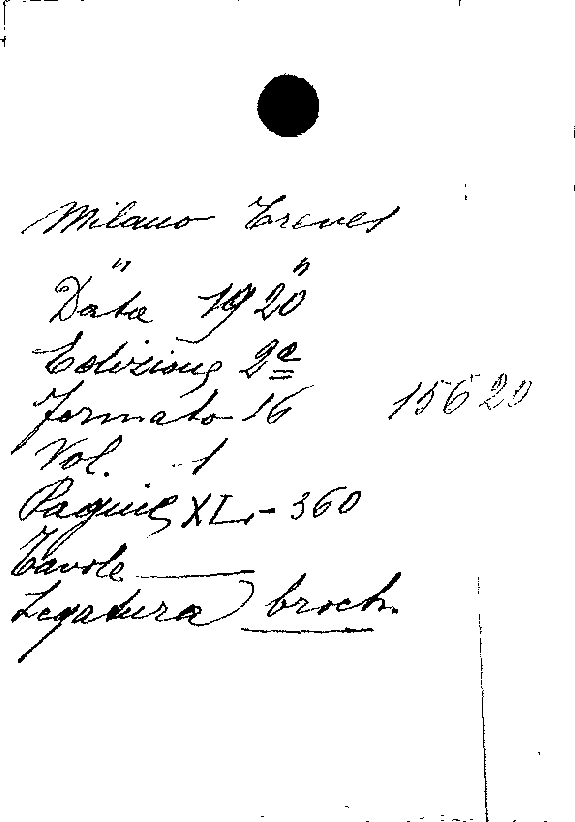 Milano Treves
" "
Data 1920
Edizione 2a
formato 16 15620
Vol. 1
Pagine XL - 360
Tavole
Legatura broch.